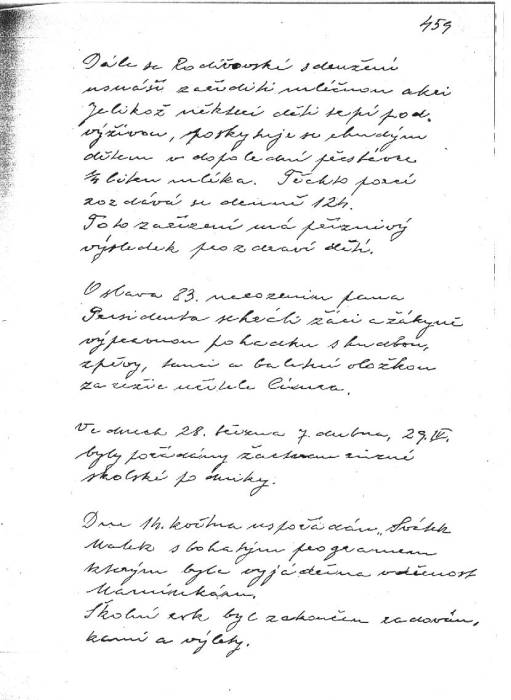 459
Dále se Rodičovské sdružení
usnáší zaříditi mléčnou akci
Jelikož některé děti trpí pod.
výživou, poskytuje se chudým
dětem v dopolední přestávce
¼ litru mléka. Těchto porcí
rozdává se denně 124.
Toto zařízení má příznivý
výsledek pro zdraví dětí.
Oslava 83. narozenin pana
Presidenta sehráli žáci a žákyně
výpravnou pohádku s hudbou,
zpěvy, tanci a baletní vložkou
za režie učitele
Ve dnech 28. března 7. dubna, 29. IV.
byly pořádány žactvem různé
školské podniky.
Dne 14. května uspořádán „Svátek
Matek s bohatým programem
kterým byla vyjádřena vděčnost
Maminkám.
Školní rok byl zakončen radován,
kami a výlety.